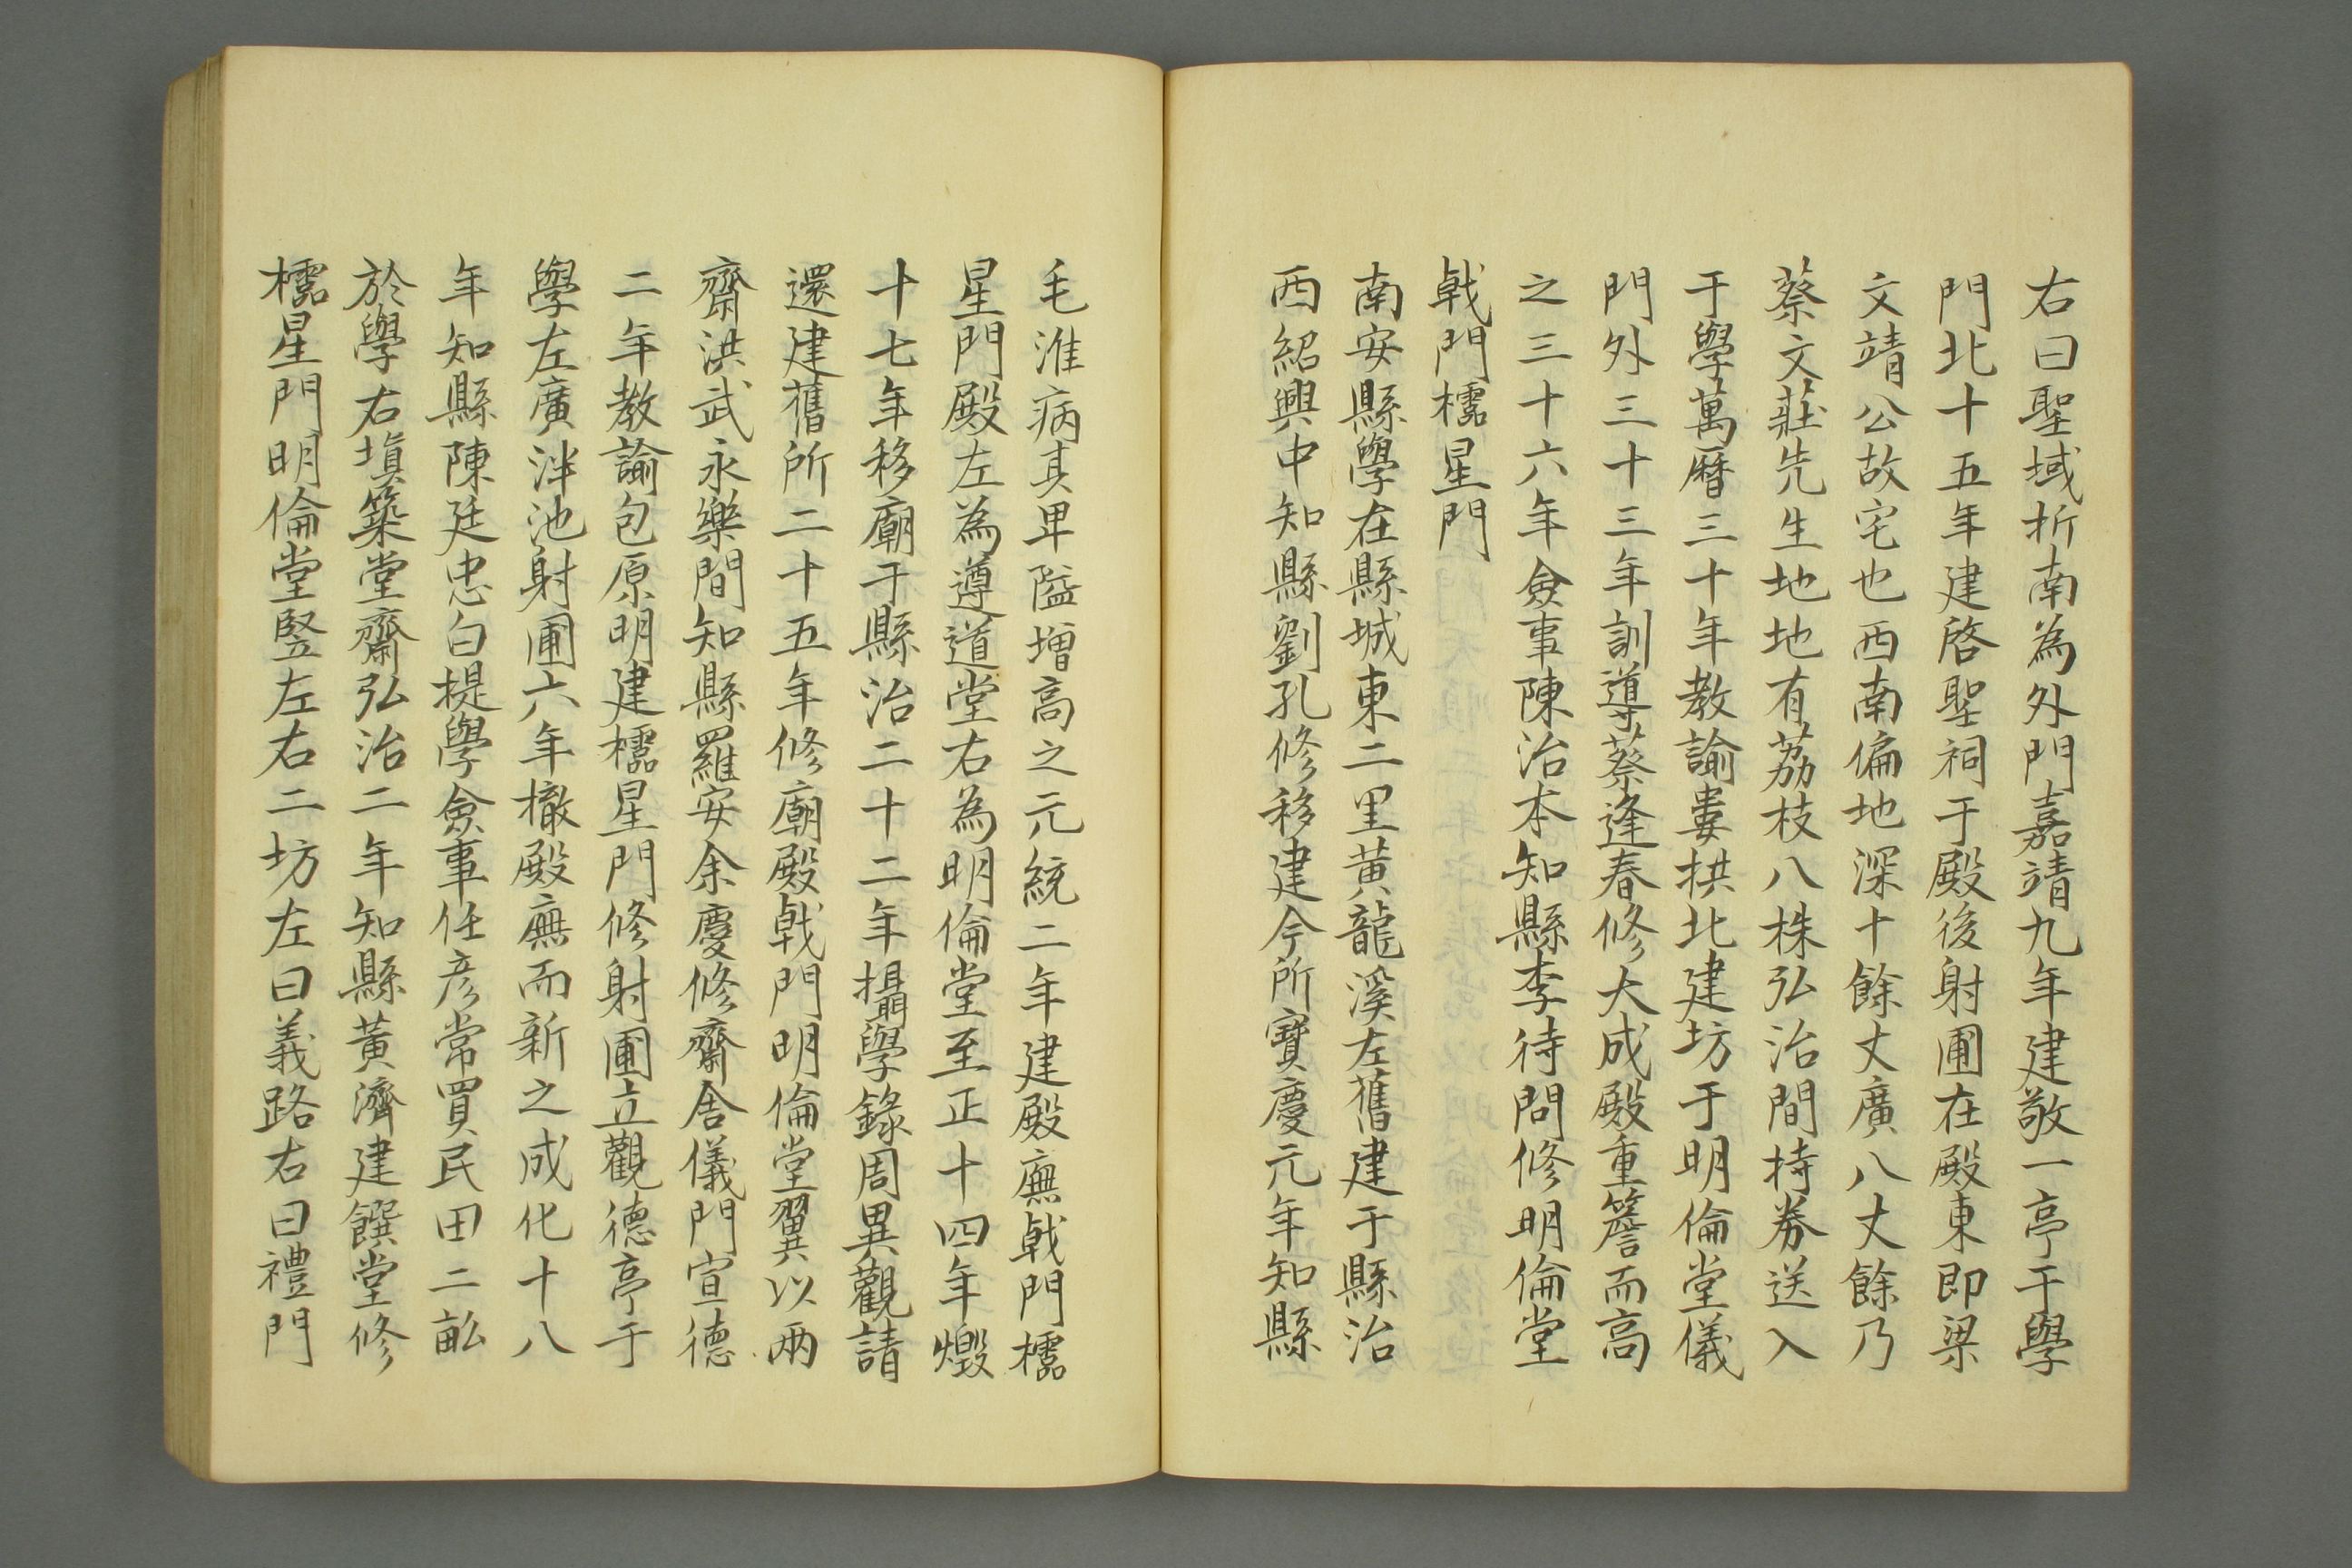 右曰聖域折南為外門嘉靖九年建敬一亭于學
門北十五年建啓聖祠于殿後射圃在殿東即梁
文靖公故宅也西南偏地深十餘丈廣八丈餘乃
蔡文莊先生地地有荔枝八株弘治間持券送入
于學萬曆三十年教諭婁拱北建坊于明倫堂儀
門外三十三年訓導蔡逢春修大成殿重簷而高
之三十六年僉事陳治本知縣李待問修明倫堂
戟門櫺星門
南安縣學在縣城東二里黃龍溪左舊建于縣治
西紹興中知縣劉孔修移建今所寶慶元年知縣
毛淮病其卑隘增高之元統二年建殿廡戟門櫺
星門殿左為遵道堂右為明倫堂至正十四年燬
十七年移廟于縣治二十二年攝學錄周異觀請
還建舊所二十五年修廟殿戟門明倫堂翼以兩
齋洪武永樂間知縣羅安余慶修齋舍儀門宣德
二年教諭包原明建櫺星門修射圃立觀德亭于
學左廣泮池射圃六年撤殿廡而新之成化十八
年知縣陳廷忠白提學僉事任彥常買民田二畝
於學右填築堂齋弘治二年知縣黃濟建饌堂修
櫺星門明倫堂豎左右二坊左曰義路右曰禮門